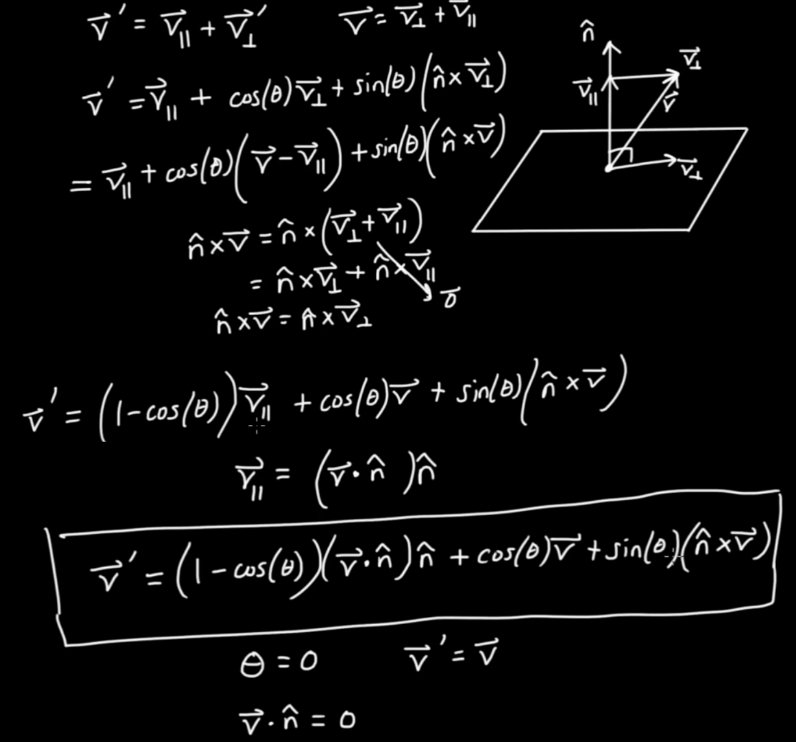 v⃗′ = v⃗∥ + v⃗⊥′    v⃗ = v⃗⊥ + v⃗∥
v⃗′ = v⃗∥ + cos(θ)v⃗⊥ + sin(θ)(n̂ × v⃗⊥)
= v⃗∥ + cos(θ)(v⃗ − v⃗∥) + sin(θ)(n̂ × v⃗)
n̂ × v⃗ = n̂ × (v⃗⊥ + v⃗∥)
= n̂ × v⃗⊥ + n̂ × v⃗∥
0⃗
n̂ × v⃗ = n̂ × v⃗⊥
n̂
v⃗⊥
v⃗∥
v⃗
v⃗⊥
v⃗′ = (1−cos(θ))v⃗∥ + cos(θ)v⃗ + sin(θ)(n̂ × v⃗)
v⃗∥ = (v⃗·n̂)n̂
v⃗′ = (1−cos(θ))(v⃗·n̂)n̂ + cos(θ)v⃗ + sin(θ)(n̂ × v⃗)
θ = 0    v⃗′ = v⃗
v⃗·n̂ = 0